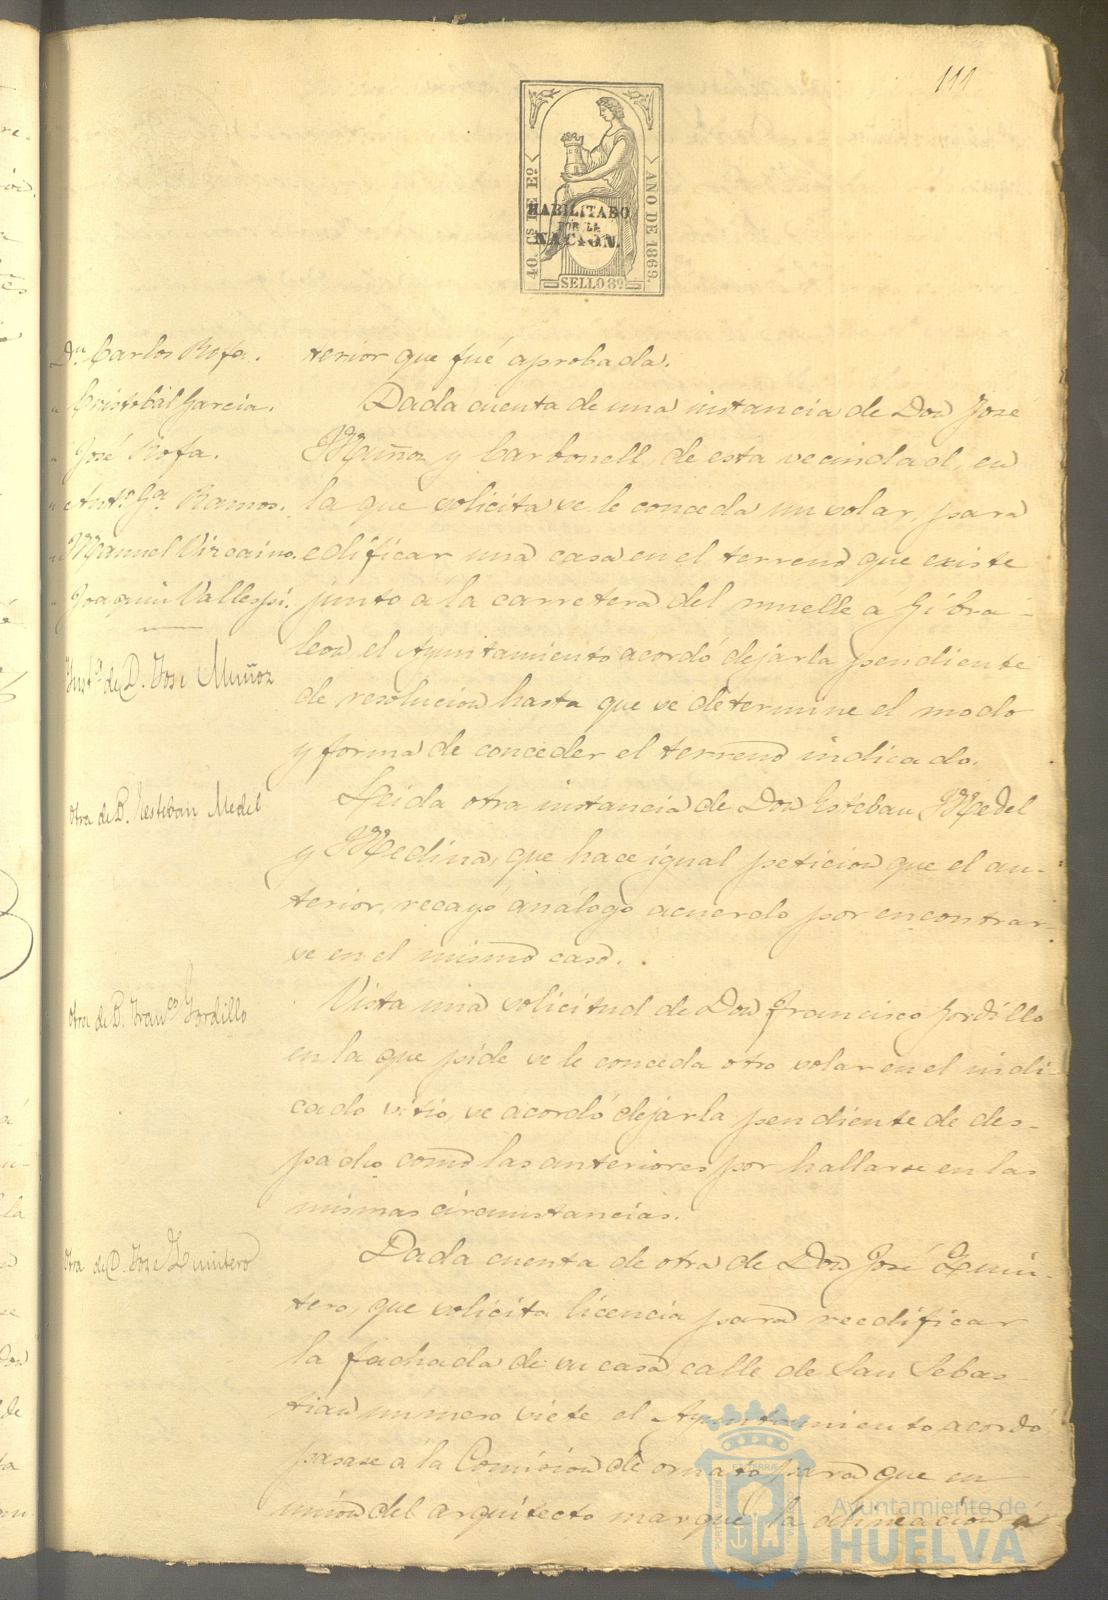 111
40 CS DE Eº
AÑO DE 1869.
HABILITADO
POR LA
NACION.
SELLO 8º
Dn. Carlos Rofa.
" Cristobal Garcia.
" José Rofa.
" Antº Gª Ramos.
" Manuel Vizcaino.
" Joaquin Vallespi.
Instª de D. Jose Muñoz
Otra de D. Esteban Medel
Otra de D. Franco Gordillo
Otra de D. Jose Quintero
terior que fué aprobada.
Dada cuenta de una instancia de Don José
Muñoz y Carbonell, de esta vecindad, en
la que solicita se le conceda un solar, para
edificar una casa en el terreno que existe
junto á la carretera del muelle á Gibra-
leon, el Ayuntamiento acordó dejarla pendiente
de resolucion hasta que se determine el modo
y forma de conceder el terreno indicado.
Leida otra instancia de Don Esteban Medel
y Medina, que hace igual peticion que el an-
terior, recayó análogo acuerdo por encontrar-
se en el mismo caso.
Vista una solicitud de Don Francisco Gordillo
en la que pide se le conceda otro solar en el indi-
cado sitio, se acordó dejarla pendiente de des-
pacho como las anteriores por hallarse en las
mismas circunstancias.
Dada cuenta de otra de Don José Quin-
tero, que solicita licencia para reedificar
la fachada de su casa calle de San Sebas-
tian numero siete, el Ayuntamiento acordó
pasase á la Comision de ornato para que en
union del arquitecto marque la alineacion á
Ayuntamiento de
HUELVA